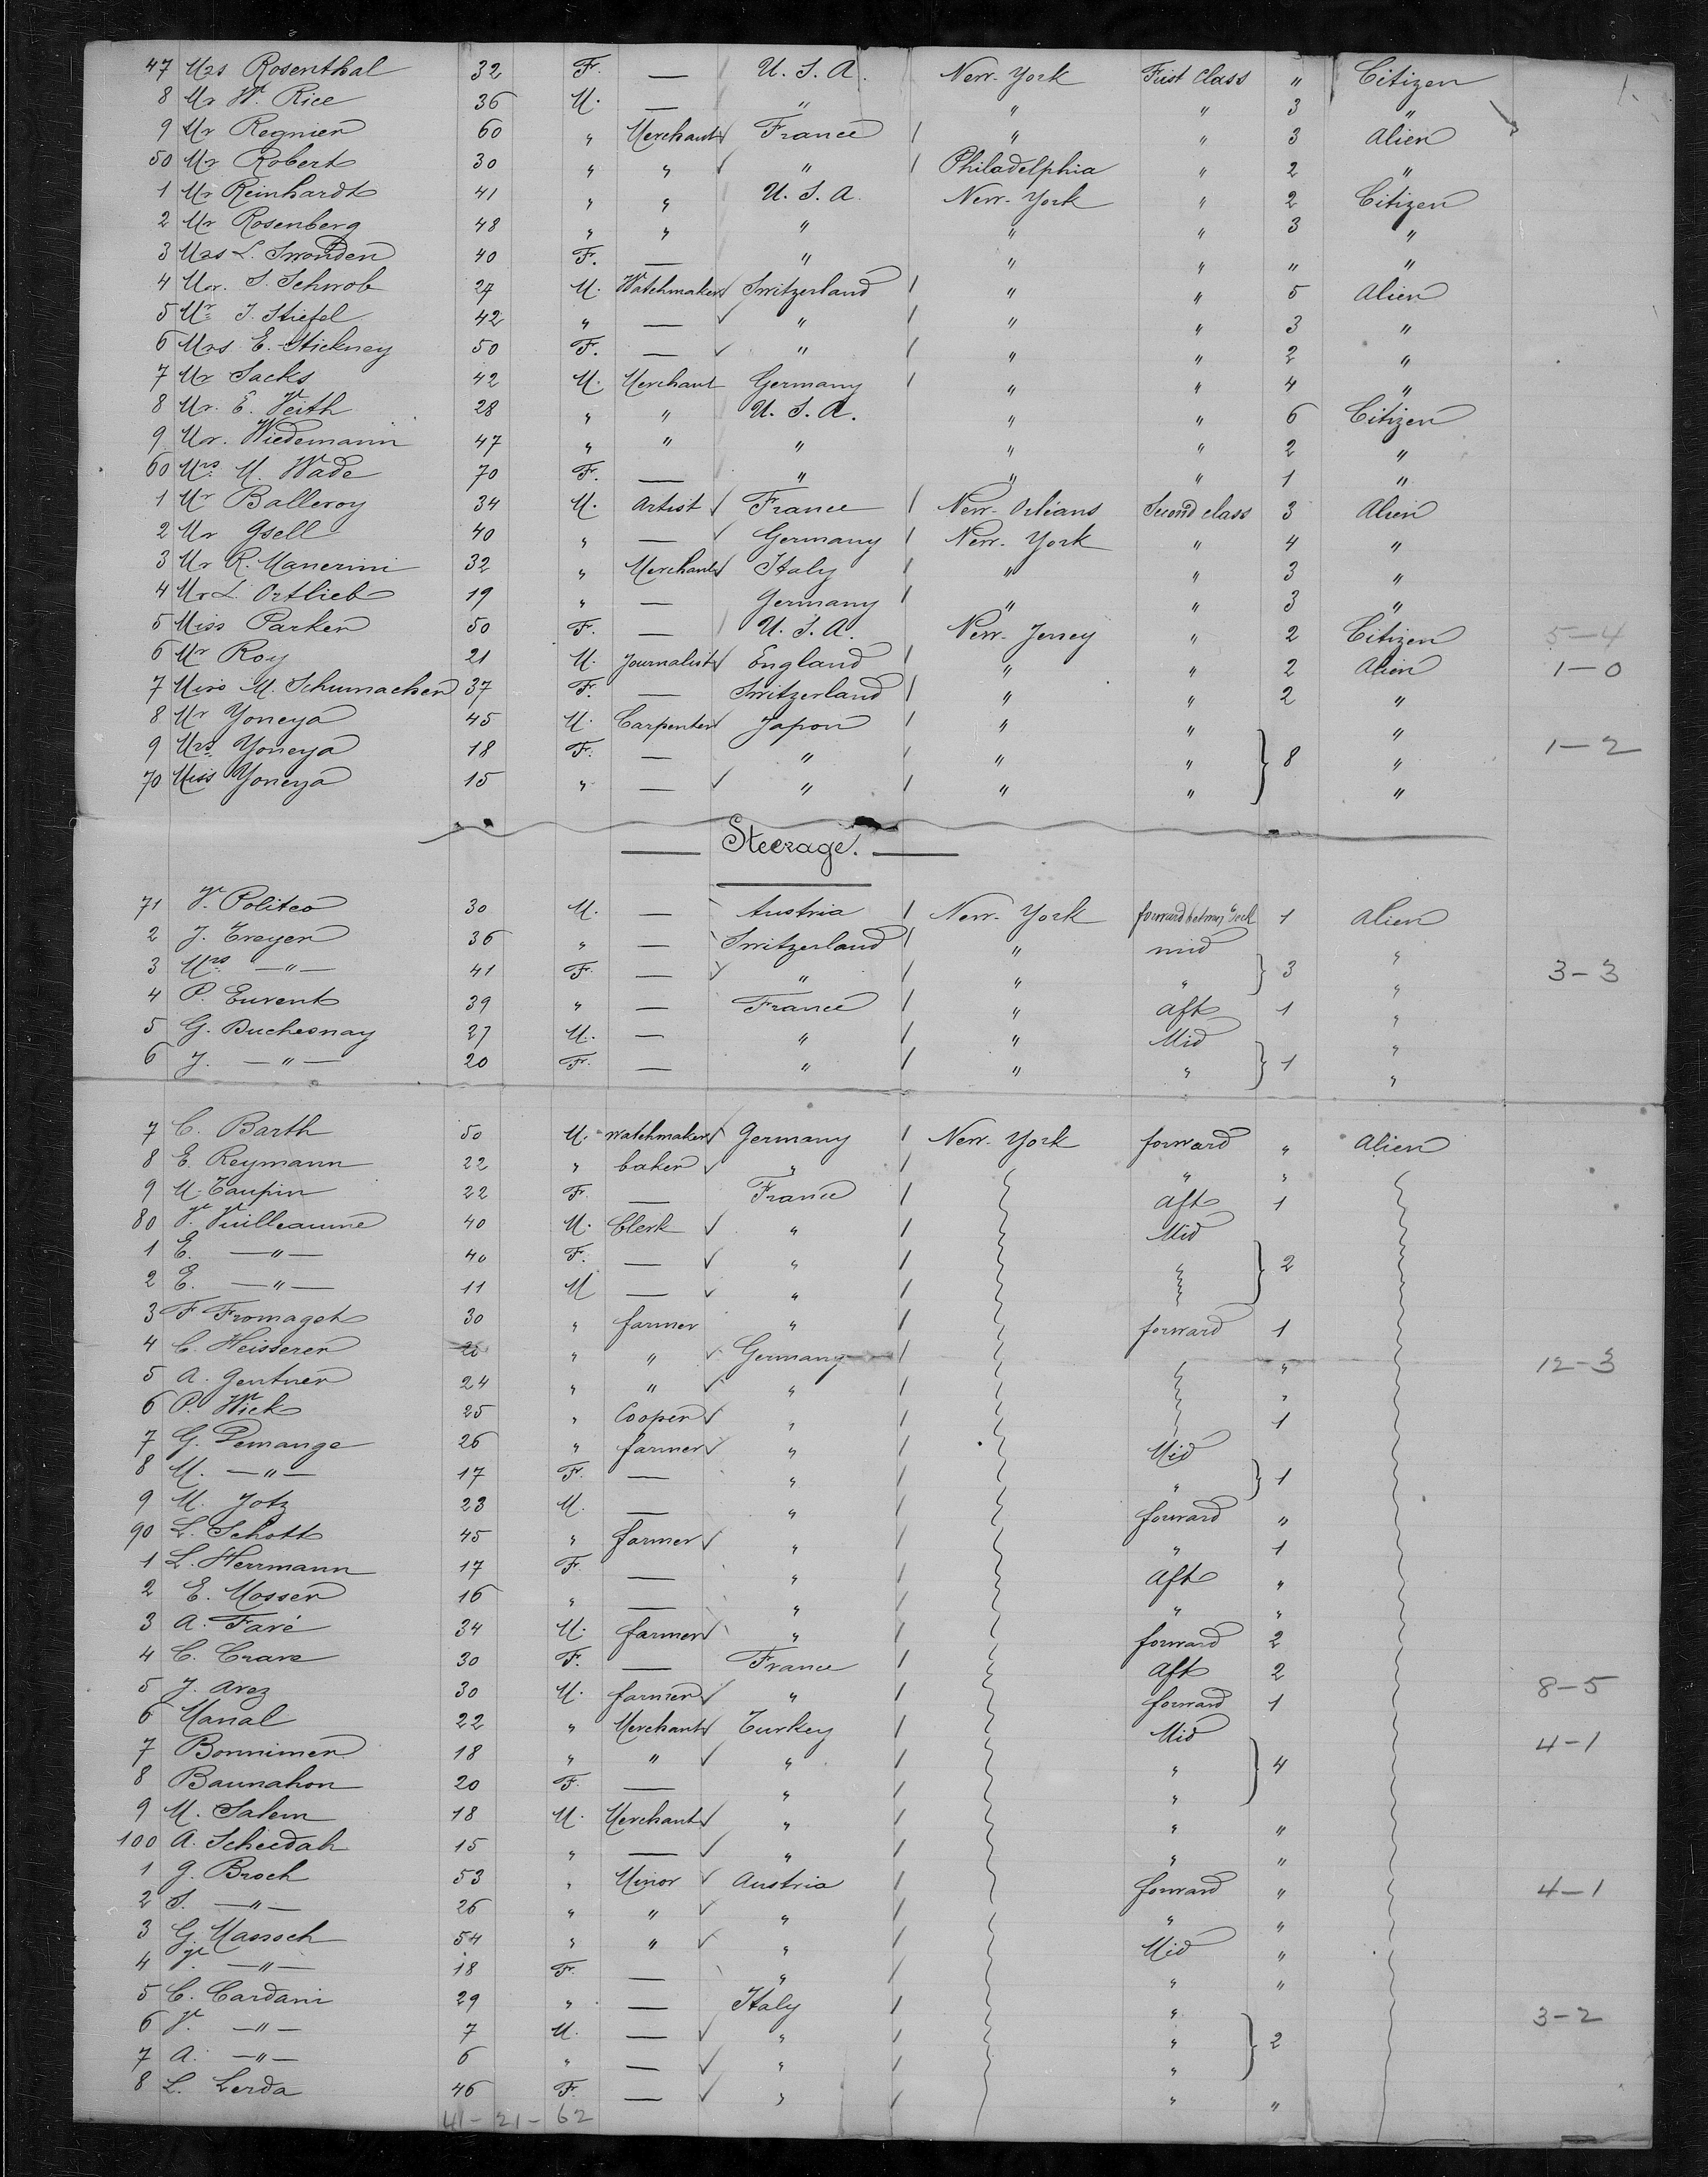 47 Mrs Rosenthal 32 F. — U. S. A. New-York First Class " Citizen
8 Mr W. Rice 36 M. — " " " 3 "
9 Mr Regnier 60 " Merchant France " " 3 Alien
50 Mr Robert 30 " " " Philadelphia " 2 "
1 Mr Reinhardt 41 " " U. S. A. New-York " 2 Citizen
2 Mr Rosenberg 48 " " " " " 3 "
3 Mrs L. Swonden 40 F. — " " " " "
4 Mr. S. Schwob 27 M. Watchmaker Switzerland " " 5 Alien
5 Mr J. Stiefel 42 " — " " " 3 "
6 Mrs E. Stickney 50 F. — " " " 2 "
7 Mr Sacks 42 M. Merchant Germany " " 4 "
8 Mr. E. Veith 28 " " U. S. A. " " 6 Citizen
9 Mr. Wiedemann 47 " " " " " 2 "
60 Mrs M. Wade 70 F. — " " " 1 "
1 Mr Balleroy 34 M. Artist France New-Orléans Second class 3 Alien
2 Mr Gsell 40 " — Germany New-York " 4 "
3 Mr R. Manerini 32 " Merchant Italy " " 3 "
4 Mr L. Ortlieb 19 " — Germany " " 3 "
5 Miss Parker 50 F. — U. S. A. New-Jersey " 2 Citizen 5-4
6 Mr Roy 21 M. Journalist England " " 2 Alien 1-0
7 Miss M. Schumacher 37 F. — Switzerland " " 2 "
8 Mr Yoneya 45 M. Carpenter Japon " " "
9 Mrs Yoneya 18 F. — " " " 8 " 1-2
70 Miss Yoneya 15 " — " " " "
Steerage.
71 V. Politeo 30 M. — Austria New-York forward 1 Alien
2 J. Treyer 36 " — Switzerland " mid "
3 Mrs —"— 41 F. — " " " 3 " 3-3
4 P. Eurent 39 " — France " aft 1 "
5 G. Duchesnay 27 M. — " " Mid "
6 J. —"— 20 F. — " " " 1 "
7 C. Barth 50 M. watchmaker Germany New-York forward " Alien
8 E. Reymann 22 " baker " " "
9 M. Taupin 22 F. — France aft 1
80 V. Vuilleaume 40 M. Clerk " Mid
1 E. —"— 40 F. — " " 2
2 E. —"— 11 M — "
3 F Fromaget 30 " farmer " forward 1
4 C. Heisserer 26 " " Germany " 12-3
5 A. Gentner 24 " " " "
6 P. Wick 25 " Cooper " 1
7 G. Demange 26 " farmer " Mid
8 M. —"— 17 F. — " " 1
9 M. Jotz 23 M. — " forward "
90 L. Schott 45 " farmer " " 1
1 L. Herrmann 17 F. — " aft "
2 E. Mosser 16 " — " " "
3 A. Favé 34 M. farmer " forward 2
4 C. Crave 30 F. — France aft 2
5 J. Arez 30 M. farmer " forward 1 8-5
6 Manal 22 " Merchant Turkey Mid
7 Bonnimer 18 " " " " 4 4-1
8 Baunahon 20 F. — " "
9 M. Salem 18 M. Merchant " " "
100 A. Scheedah 15 " — " " "
1 G. Broch 53 " Minor Austria forward " 4-1
2 S. —"— 26 " " " " "
3 G. Massoch 54 " " " Mid "
4 V. —"— 18 F. — " " "
5 C. Cardani 29 " — Italy "
6 V. —"— 7 M. — " " 2 3-2
7 A. —"— 6 " — " "
8 L. Lerda 46 F. — " " "
41-21-62